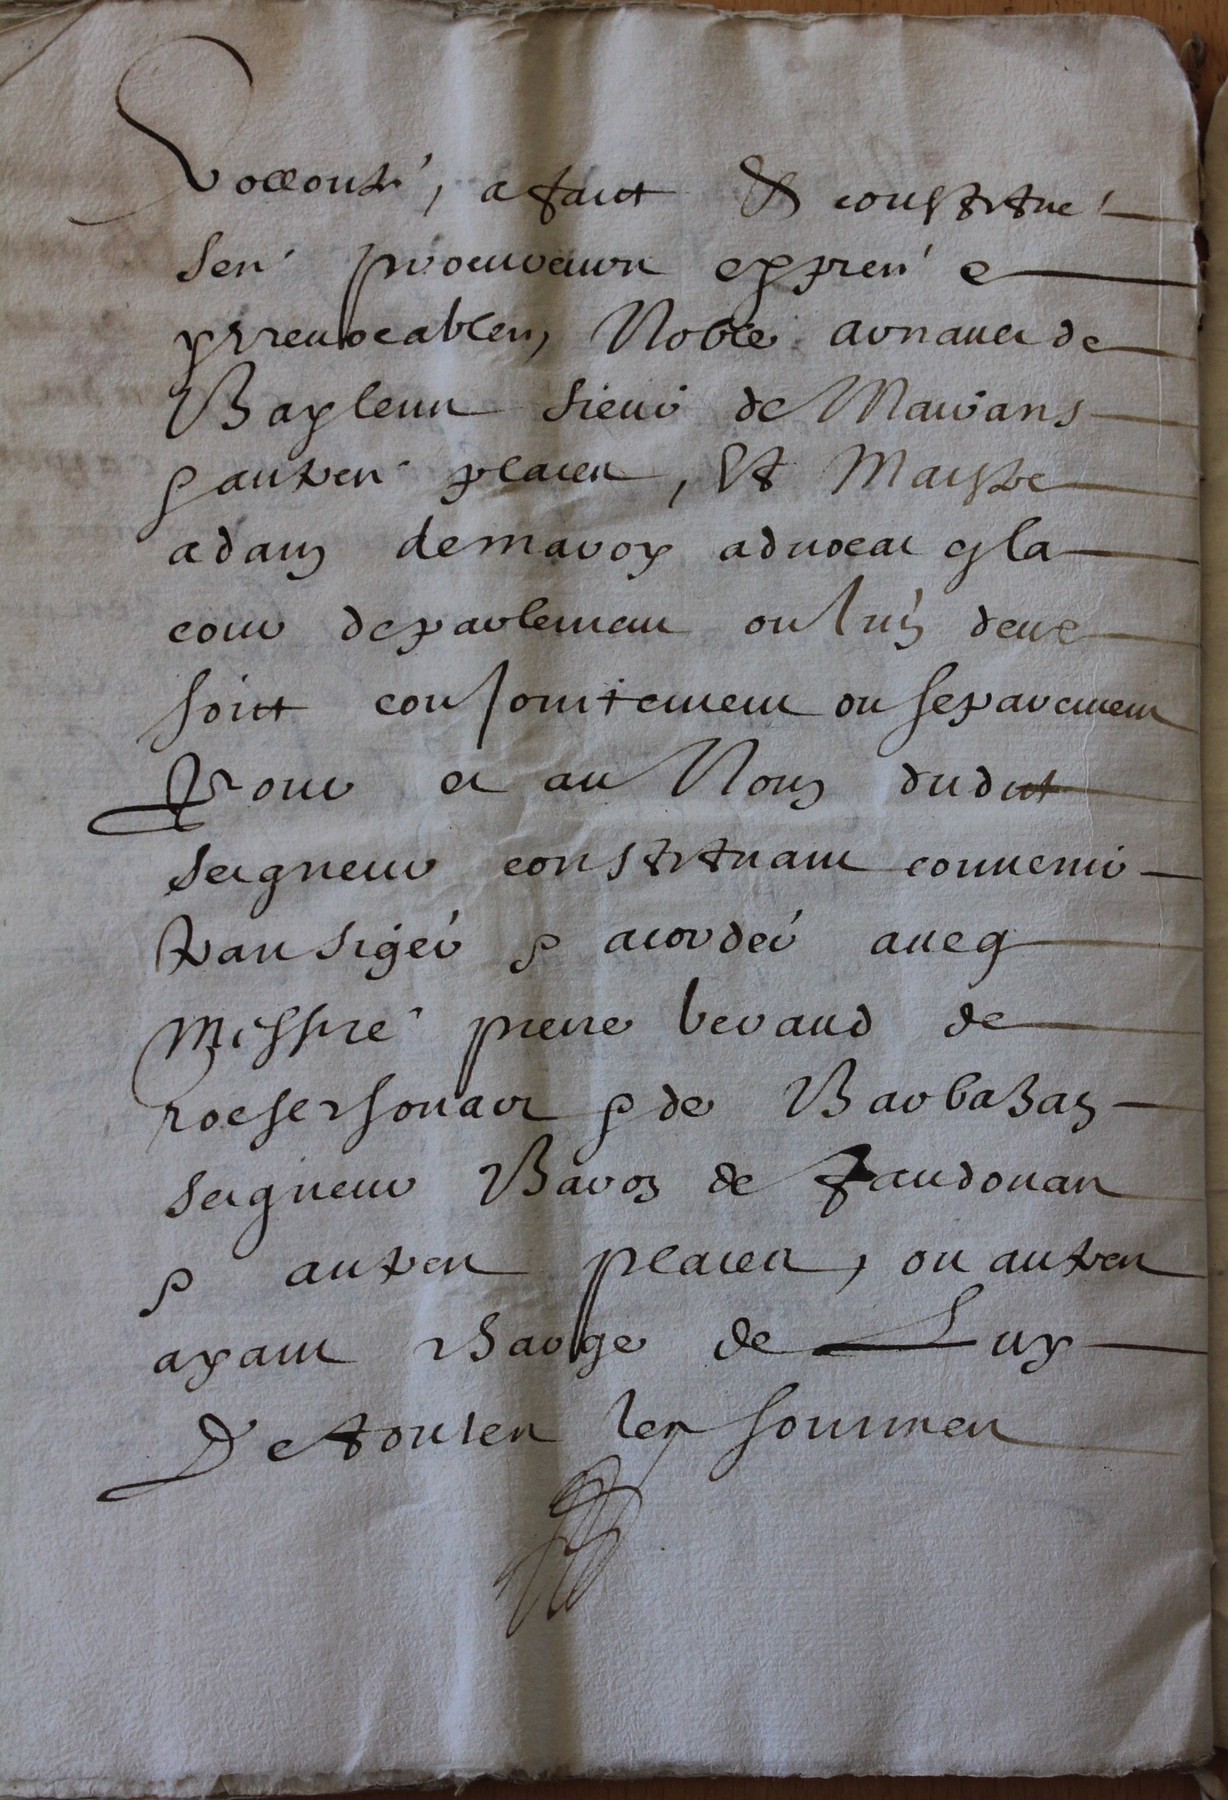 vollonté, a faict & constitué
ses procureurs expres e
yrrevocables, Noble arnaud de
Baylens sieur de Marsans
& autres places, Et Maistre
adam demaroy advocat en la
cour deparlement ou lun deux
soict conjoinctement ou separement
Pour et au Nom dudict
seigneur constituant convenir
transiger & acorder aveq
Messire pierre beraud de
rochechouart & de Barbazan
seigneur Baron de faudouas
& autres places, ou autres
ayant charge de Luy
De toutes les sommes